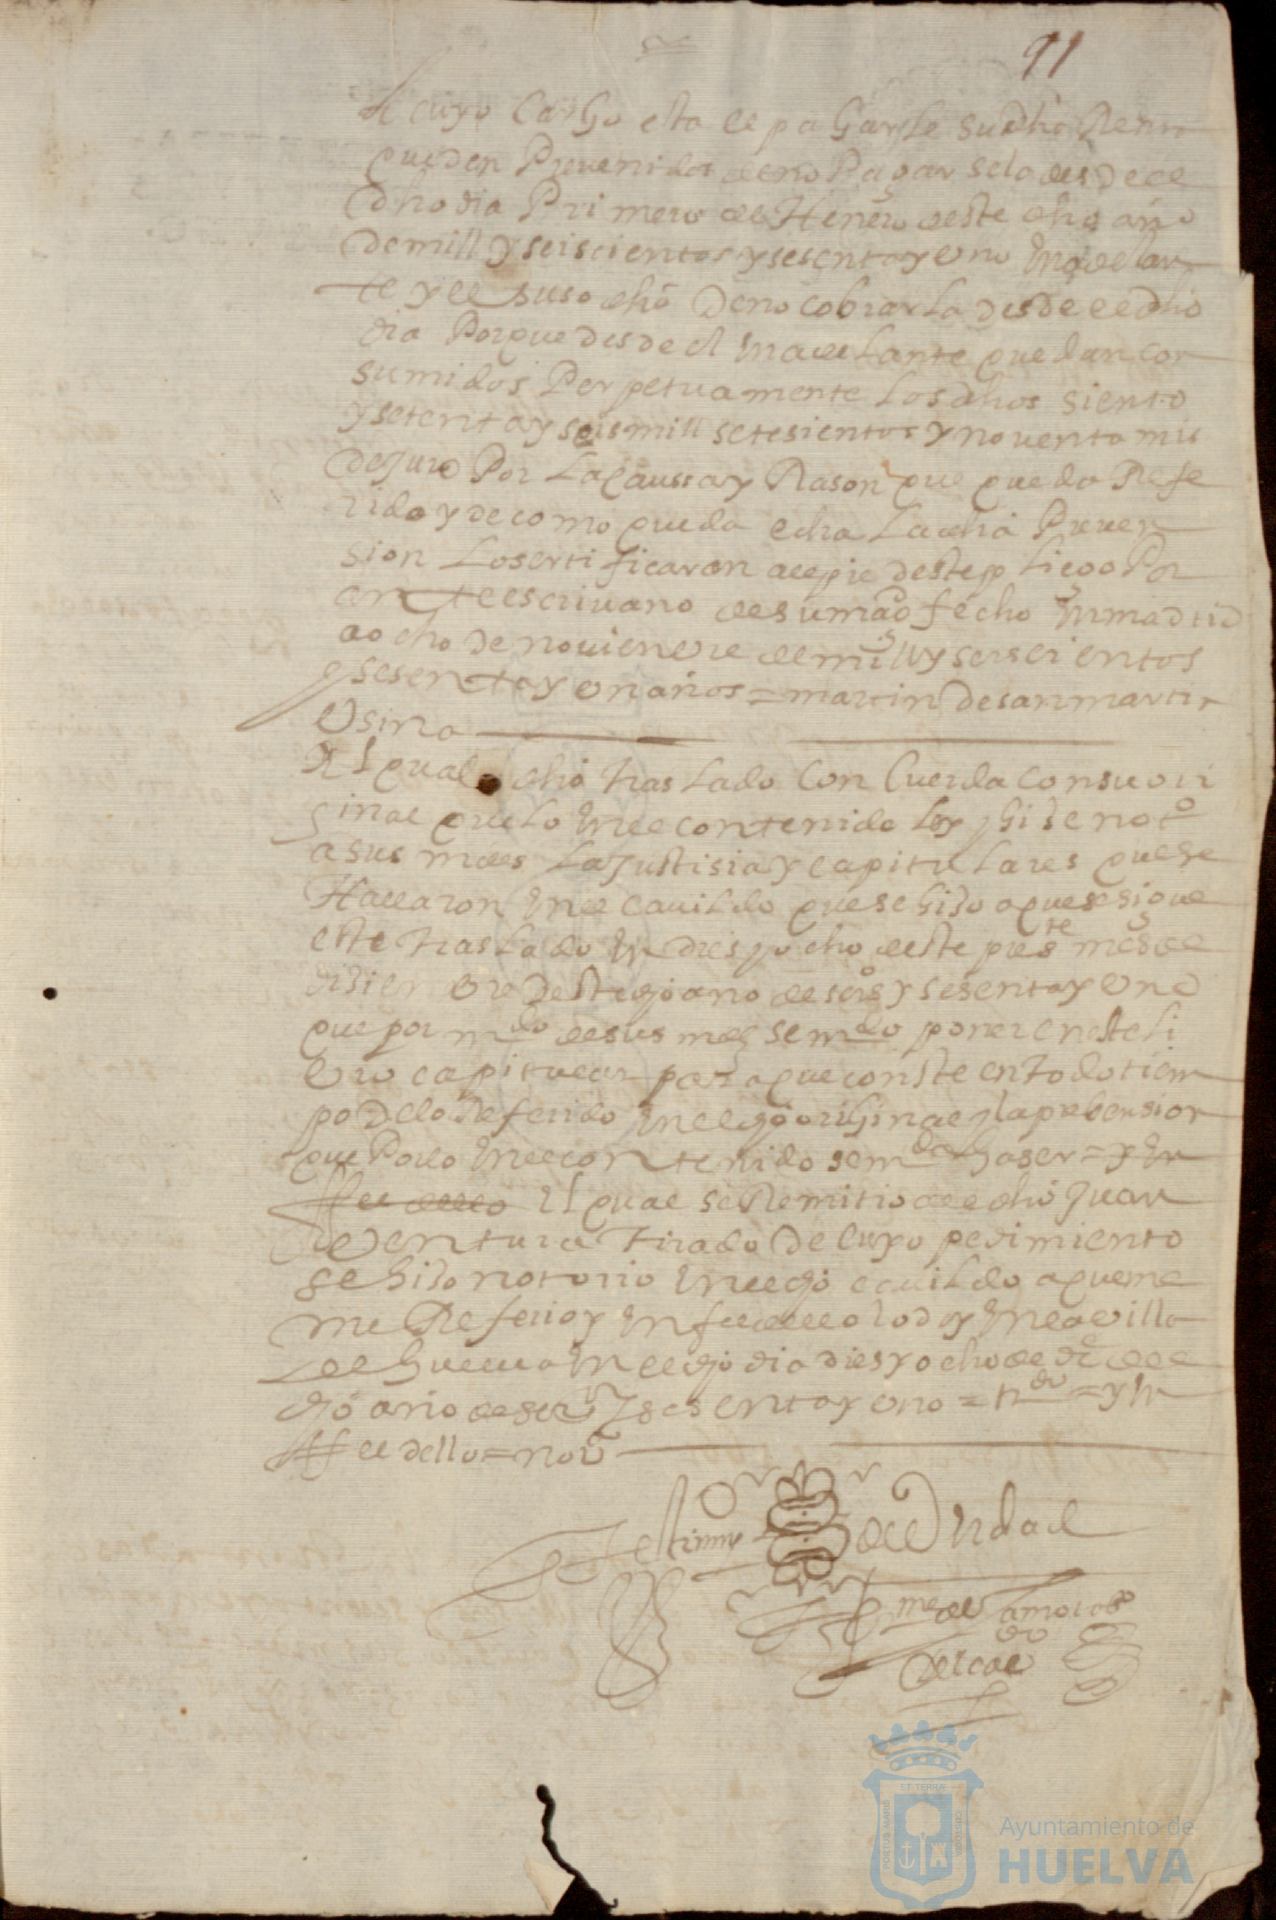 91
A cuyo Cargo esta el pagarle su dha Renta
queden Prevenidos de no Pagarsela desde el
dho dia Primero de Henero deste dho año
de mill y seiscientos y sesenta y Uno In adelan
te y el suso dho De no cobrarla desde el dho
dia Porque desde el In adelante quedan con
sumidos Perpetuamente Los dhos siento
y setenta y seis mill setesientos y noventa mrs
de Juro Por La Caussa y Rason que queda Refe
rida y de como queda echa La dha Preven
sion Lo sertificaron al pie deste pliego Por
ante escrivano de su magd fecho In madrid
a ocho de novienvre de mill y seiscientos
y sesenta y Un años = martin De san martin
Usina
El qual dho traslado Concuerda con su ori
ginal que lo Inel contenido Ley hise noto
a sus mdes La Justisia y capitulares que se
Hallaron Inel Cavildo que se hiso a que se sigue
este traslado In dies y ocho deste preste mes de
disienvre Deste dho ano de seiso y sesenta y Uno
que por mdo de sus mdes se mdo poner en este li
vro capitular para que conste en todo tiem
po Delo Referido Inel dho original y la prebension
que Por lo Inel contenido se mdo haser = y In
ffee dello El qual se Remitio al dho Juan
Ventura tirado De Cuyo pedimiento
se hiso notorio Inel dho cavildo a que me
me Refierio y In fee dello lo doy Inla villa
de Huelva In el dho dia dies y ocho de De del
dho año de seiso y sesenta y Uno = tdo = y In
ffee dello = no V
En testimo de Verdad
Descal
Ayuntamiento de
HUELVA